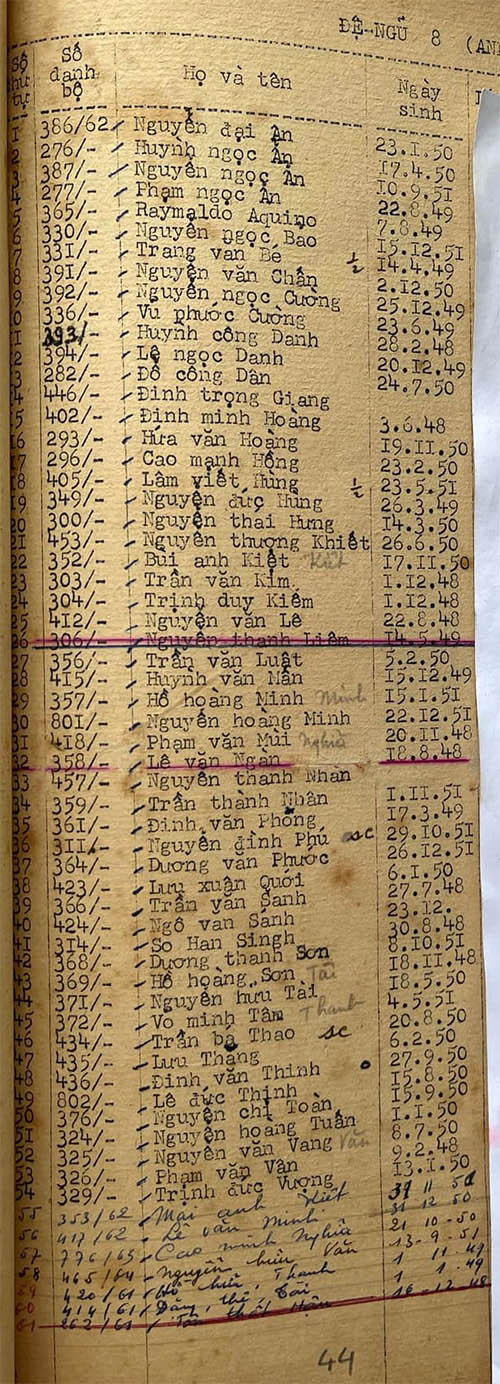 ĐỆ-NGŨ 8 (AN
Số thứ tự Số danh bộ Họ và tên Ngày sinh
1 386/62 Nguyễn đại Ân 23.1.50
2 276/- Huỳnh ngọc Ẩn 17.4.50
3 387/- Nguyễn ngọc Ẩn 10.9.51
4 277/- Phạm ngọc Ẩn 22.8.49
5 365/- Raymaldo Aquino 7.8.49
6 330/- Nguyễn ngọc Bao 15.12.51
7 331/- Trang văn Bé ½ 14.4.49
8 391/- Nguyễn văn Chấn 2.12.50
9 392/- Nguyễn ngọc Cường 25.12.49
10 336/- Vu phước Cường 23.6.49
11 393/- Huỳnh công Danh 28.2.48
12 394/- Lê ngọc Danh 20.12.49
13 282/- Đỗ công Dân 24.7.50
14 446/- Đinh trọng Giang
15 402/- Đinh minh Hoàng 3.6.48
16 293/- Hứa văn Hoàng 19.11.50
17 296/- Cao mạnh Hồng 23.2.50
18 405/- Lâm viết Hùng ½ 23.5.51
19 349/- Nguyễn đức Hùng 26.3.49
20 300/- Nguyễn thai Hưng 14.3.50
21 453/- Nguyễn thượng Khiết 26.6.50
22 352/- Bùi anh Kiệt Kiệt 17.11.50
23 303/- Trần văn Kim 1.12.48
24 304/- Trịnh duy Kiếm 1.12.48
25 412/- Nguyễn văn Lê 22.8.48
26 306/- Nguyễn thanh Liêm 14.5.49
27 356/- Trần văn Luật 5.2.50
28 415/- Huỳnh văn Mẫn 15.12.49
29 357/- Hồ hoàng Minh Minh 15.1.51
30 801/- Nguyễn hoàng Minh 22.12.51
31 418/- Phạm văn Mùi Nghĩa 20.11.48
32 358/- Lê văn Ngàn 18.8.48
33 457/- Nguyễn thanh Nhàn
34 359/- Trần thành Nhân 1.11.51
35 361/- Đinh văn Phong 17.3.49
36 311/- Nguyễn đình Phú sc 29.10.51
37 364/- Dương văn Phước 26.12.51
38 423/- Lưu xuân Quới 6.1.50
39 366/- Trần văn Sanh 27.7.48
40 424/- Ngô văn Sanh 23.12.
41 314/- So Han Singh 30.8.48
42 368/- Dương thanh Sơn 8.10.51
43 369/- Hồ hoàng Sơn Tài 18.11.48
44 371/- Nguyễn hữu Tài 18.5.50
45 372/- Vo minh Tâm Thanh 4.5.51
46 434/- Trần bá Thao sc 20.8.50
47 435/- Lưu Thăng 6.2.50
48 436/- Đinh văn Thinh 27.9.50
49 802/- Lê đức Thịnh 15.8.50
50 376/- Nguyễn chí Toàn 15.9.50
51 324/- Nguyễn hoàng Tuấn 1.1.50
52 325/- Nguyễn văn Vang Văn 8.7.50
53 326/- Phạm văn Vân 9.2.48
54 329/- Trịnh đức Vượng 13.1.50
55 353/62 Mai anh Kiệt 31 11 50
56 417/62 Lê văn Minh 31 12 50
57 776/63 Cao minh Nghĩa 21 10-50
58 465/64 Nguyễn hữu Văn 13-9-51
59 420/61 Hồ hữu Thanh 1 11 49
60 414/61 Đặng thế Tài 1 1.49
61 262/61 Tôn thất Hậu 16-12 48
44